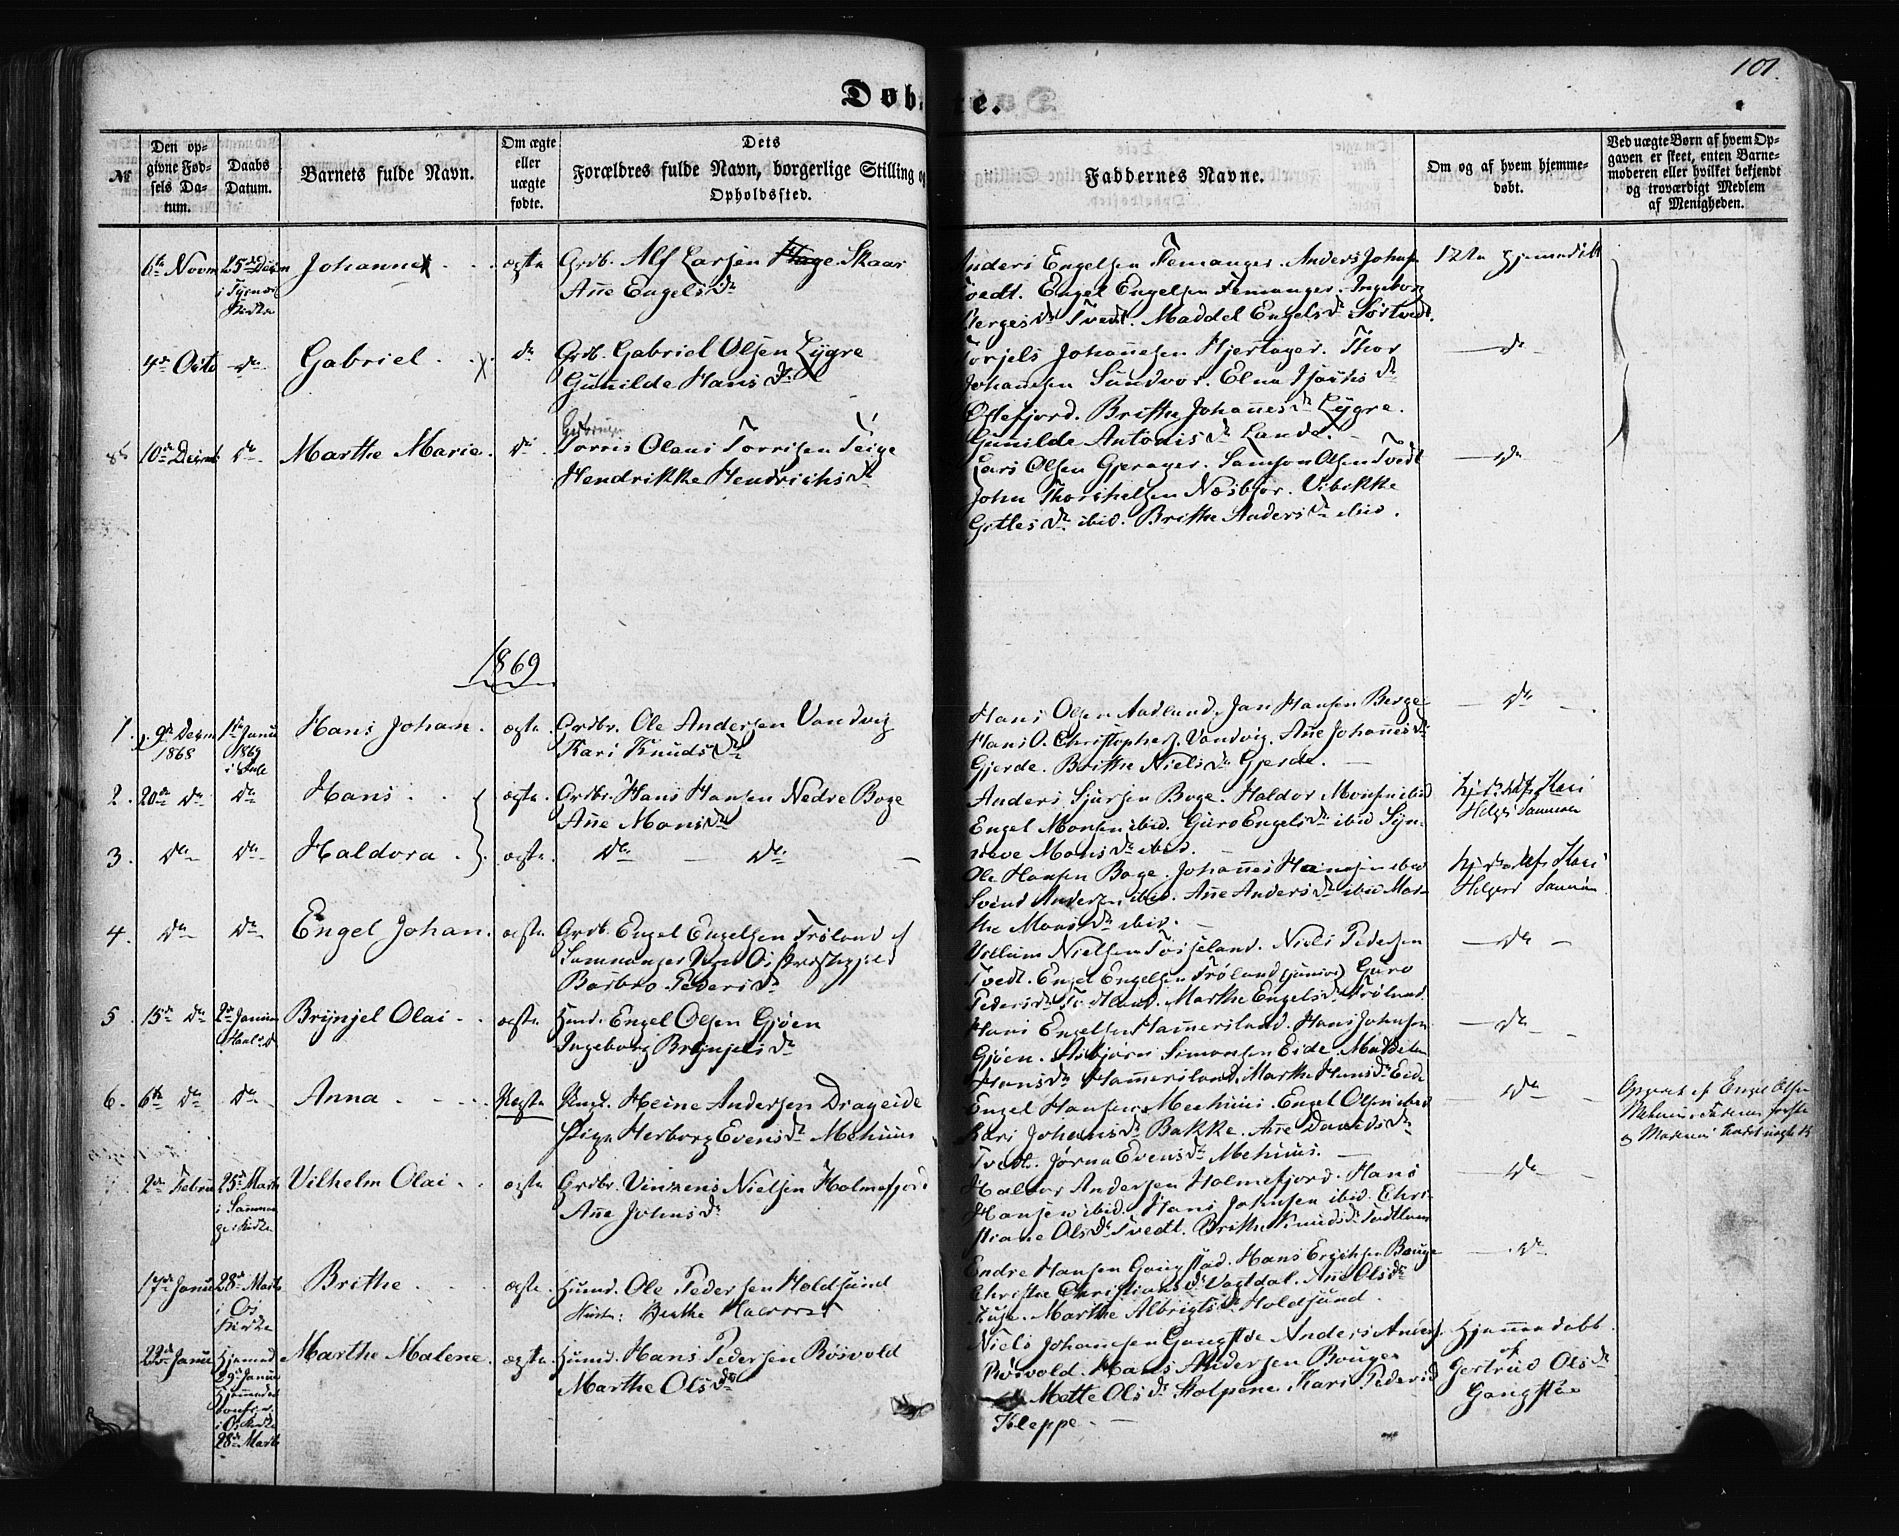 101.
Døb re.
№
Den opgivne Fødsels Datum.
Daabs Datum.
Barnets fulde Navn.
Om ægte eller uægte fødte.
Dets Forældres fulde Navn, borgerlige Stilling og Opholdssted.
Faddernes Navne.
Om og af hvem hjemmedøbt.
Ved uægte Børn af hvem Opgaven er skeet, enten Barnemoderen eller hvilket bekjendt og troværdigt Medlem af Menigheden.
6te Novm 25de Decm Johanne ægte Grdb. Alf Larsen Skaar
Kirke
Ane Engelsdr
Anders Engelsen Femanger. Anders Johns.
Tvedt. Engel Engelsen Femanger. Ingebor
Bergesdr Tvedt. Maddel Engelsdr Sörtvedt.
4de Octo do Gabriel do Grdb. Gabriel Olsen Lygre
Gunilde Hansdr
Torjels Johannesen Hjertager. Thor
Johannesen Sundvor. Elna
Östefjord. Brithe Johannesdr Lygre.
Gunilde Antonisdr Lande.
do
10de Decmb do Marthe Marie do Torris Olaus Torrisen Teige
Hendrikke Hendrichsdr
Lars Olsen Gjerager. Samson Olsen Tvedt
John Thorkelsen Næsbjør. Vibekke
Gotlesdr ibid. Brithe Andersdr ibid.
do
1869
1. 9de Decm 1868 1ste Janu 1869 Hans Johan. ægte. Grdbr. Ole Andersen Vandvig
Kari Knudsdr
Hans Olsen Aadland. Jan Hansen Berge
Hans O. Christophers. Vandvig. Ane Johannesdr
Gjerde. Brithe Nielsdr Gjerde.
do
2. 20de do do Hans ægte. Grdbr. Hans Hansen Nedre Boge
Ane Monsdr
Anders Sjursen Boge. Haldor Monsen ibid
Engel Monsen ibid. Guro Engelsdr ibid Syn-
neve Monsdr ibid.
3. do do Haldora ægte. do do
Ole Hansen Boge. Johannes Hansen ibid
Svend Andersen ibid. Ane Andersdr ibid Mar-
the Monsdr ibid.
4. do do Engel Johan. ægte. Grdb. Engel Engelsen Frøland af
Samnanger Sogn Os Præstegjeld
Barbro Pedersdr
Villum Nielsen Tøsseland. Niels Pedersen
Tvedt. Engel Engelsen Frøland (junior) Guro
Pedersdr Marthe Engelsdr Frøland
do
5. 15de do 2den Januar Brynjel Olai ægte. Huusd. Engel Olsen Gjøen
Ingeborg Brynjelsdr
Hans Engelsen Hammersland. Hans Johnsen
Gjøen. Asbjørn Simonsen Eide. Madele
Hansdr Hammersland. Marthe Hansdr Eide
do
6. 6te do do Anna Uægte Ungk. Heine Andersen Drageide
Pige Herborg Evensdr Mehuus
Engel Hansen Mehuus. Engel Olsen ibid
Kari Johansdr Bakke. Ane Davidsdr
Tvedt. Jørna Evensdr Mehuus.
do
Opgivet af Engel Olsen
7. 2den Febru 25de Marts Vilhelm Olai ægte Grdbr. Vinzens Nielsen Holmefjord
Ane Johnsdr
Haldor Andersen Holmefjord. Hans
Hansen ibid. Hans Johnsen ibid. Chri-
stiane Olsdr Tvedt. Brithe Knudsdr
do
17de Janu 28de Marts i Os Kirke Brithe ægte. Huusd. Ole Pedersen Holdsund
Hustr: Berthe
Endre Hansen Gangstad. Hans Erichsen Bouge
Christine Christiansdr Vagtdal. Ane Olsdr
Marthe Albrigtsdr Holdsund.
do
22de Janu Marthe Malene ægte Huusd. Hans Pedersen Røsvold
Marthe Olsdr
i Os Kirke
28de Marts
Niels Johannesen Gangstøe Anders Anders.
Røsvold. Hans Andersen Bouge
Mette Olsdr Stolpene Kari Peders
Kleppe
Hjemmedøbt
af
Gertrud Olsdr
Gangstøe